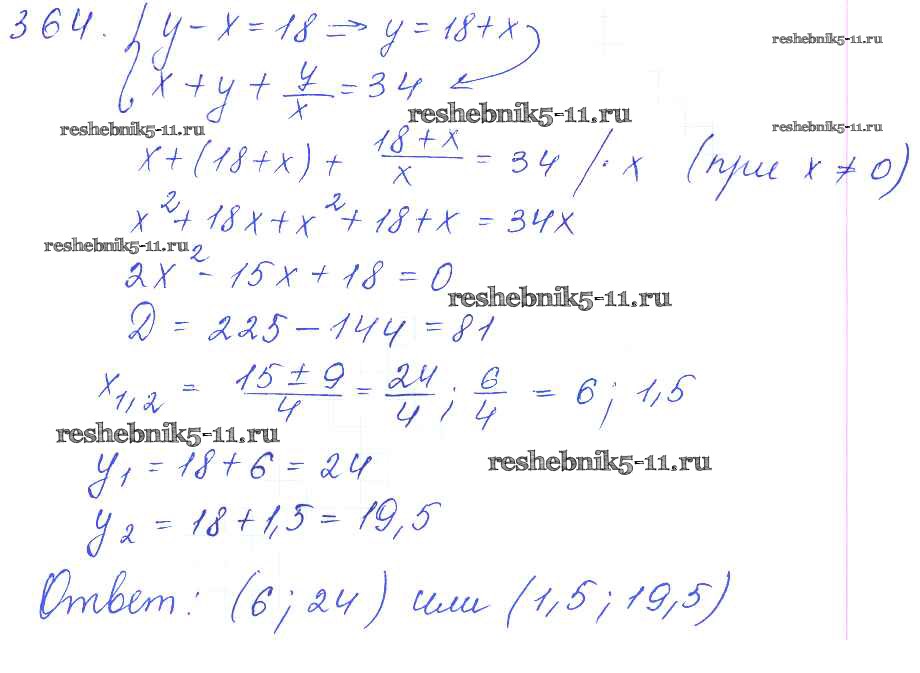 364. { y - x = 18 ⇒ y = 18 + x
reshebnik5-11.ru
x + y + y/x = 34
reshebnik5-11.ru
reshebnik5-11.ru
reshebnik5-11.ru
x + (18 + x) + (18 + x)/x = 34 / · x (при x ≠ 0)
x² + 18x + x² + 18 + x = 34x
reshebnik5-11.ru
2x² - 15x + 18 = 0
reshebnik5-11.ru
D = 225 - 144 = 81
x₁,₂ = (15 ± 9)/4 = 24/4 ; 6/4 = 6 ; 1,5
reshebnik5-11.ru
reshebnik5-11.ru
y₁ = 18 + 6 = 24
y₂ = 18 + 1,5 = 19,5
Ответ: (6 ; 24) или (1,5 ; 19,5)